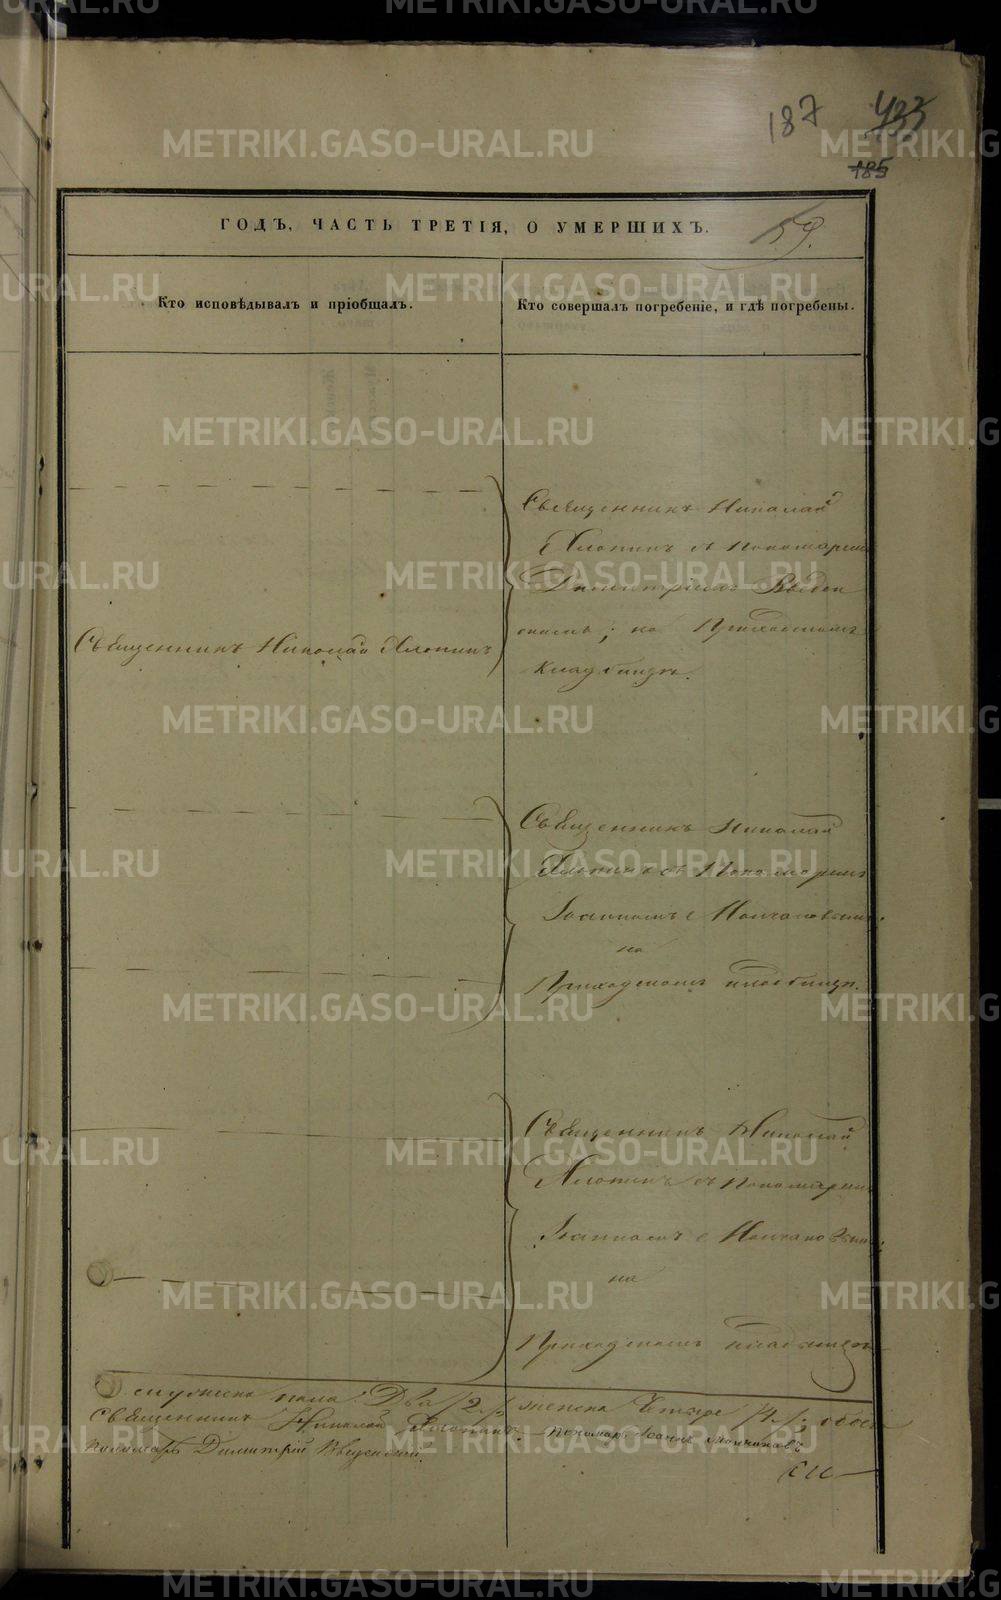 187 433
185
ГОДЪ, ЧАСТЬ ТРЕТІЯ, О УМЕРШИХЪ. 59.
Кто исповѣдывалъ и пріобщалъ.
Кто совершалъ погребеніе, и гдѣ погребены.
Священникъ Николай
съ Пономаремъ
Димитріемъ Введен
скимъ; на Приходскомъ
кладбищѣ.
Священникъ Николай
Священникъ Николай
съ Пономаремъ
Іоанномъ
на
Приходскомъ кладбищѣ.
Священникъ Николай
съ Пономаремъ
Іоанномъ
на
Приходскомъ кладбищѣ
мужеска пола Два /2./ женска Четыре /4./ обоего
Священникъ Николай
Пономарь Іоаннъ
Пономарь Димитрій Введенскій.
METRIKI.GASO-URAL.RU